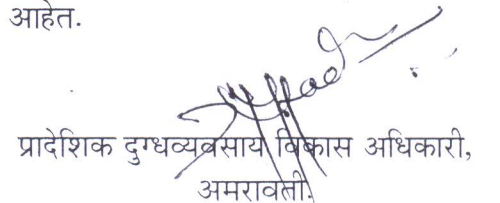 आहेत.
प्रादेशिक दुग्धव्यवसाय विकास अधिकारी,
अमरावती.